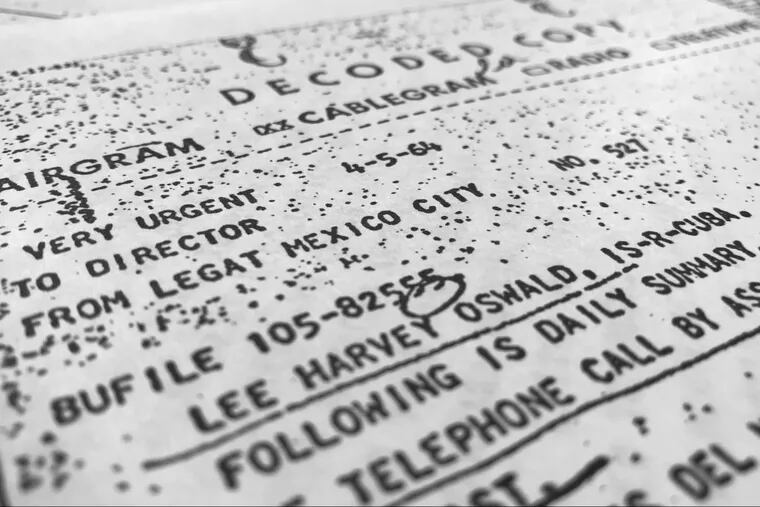 DECODED COPY
AIRGRAM CABLEGRAM RADIO
VERY URGENT 4-5-64 NO. 527
TO DIRECTOR
FROM LEGAT MEXICO CITY
BUFILE 105-82555
LEE HARVEY OSWALD, IS-R-CUBA.
FOLLOWING IS DAILY SUMMARY
TELEPHONE CALL BY
DEL